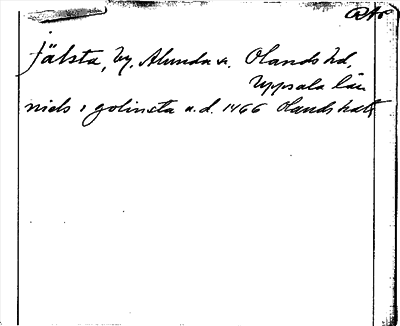 Jälsta, by, Alunda sn. Olands hd,
Uppsala län
niels i golinsta u.d. 1466 Olands